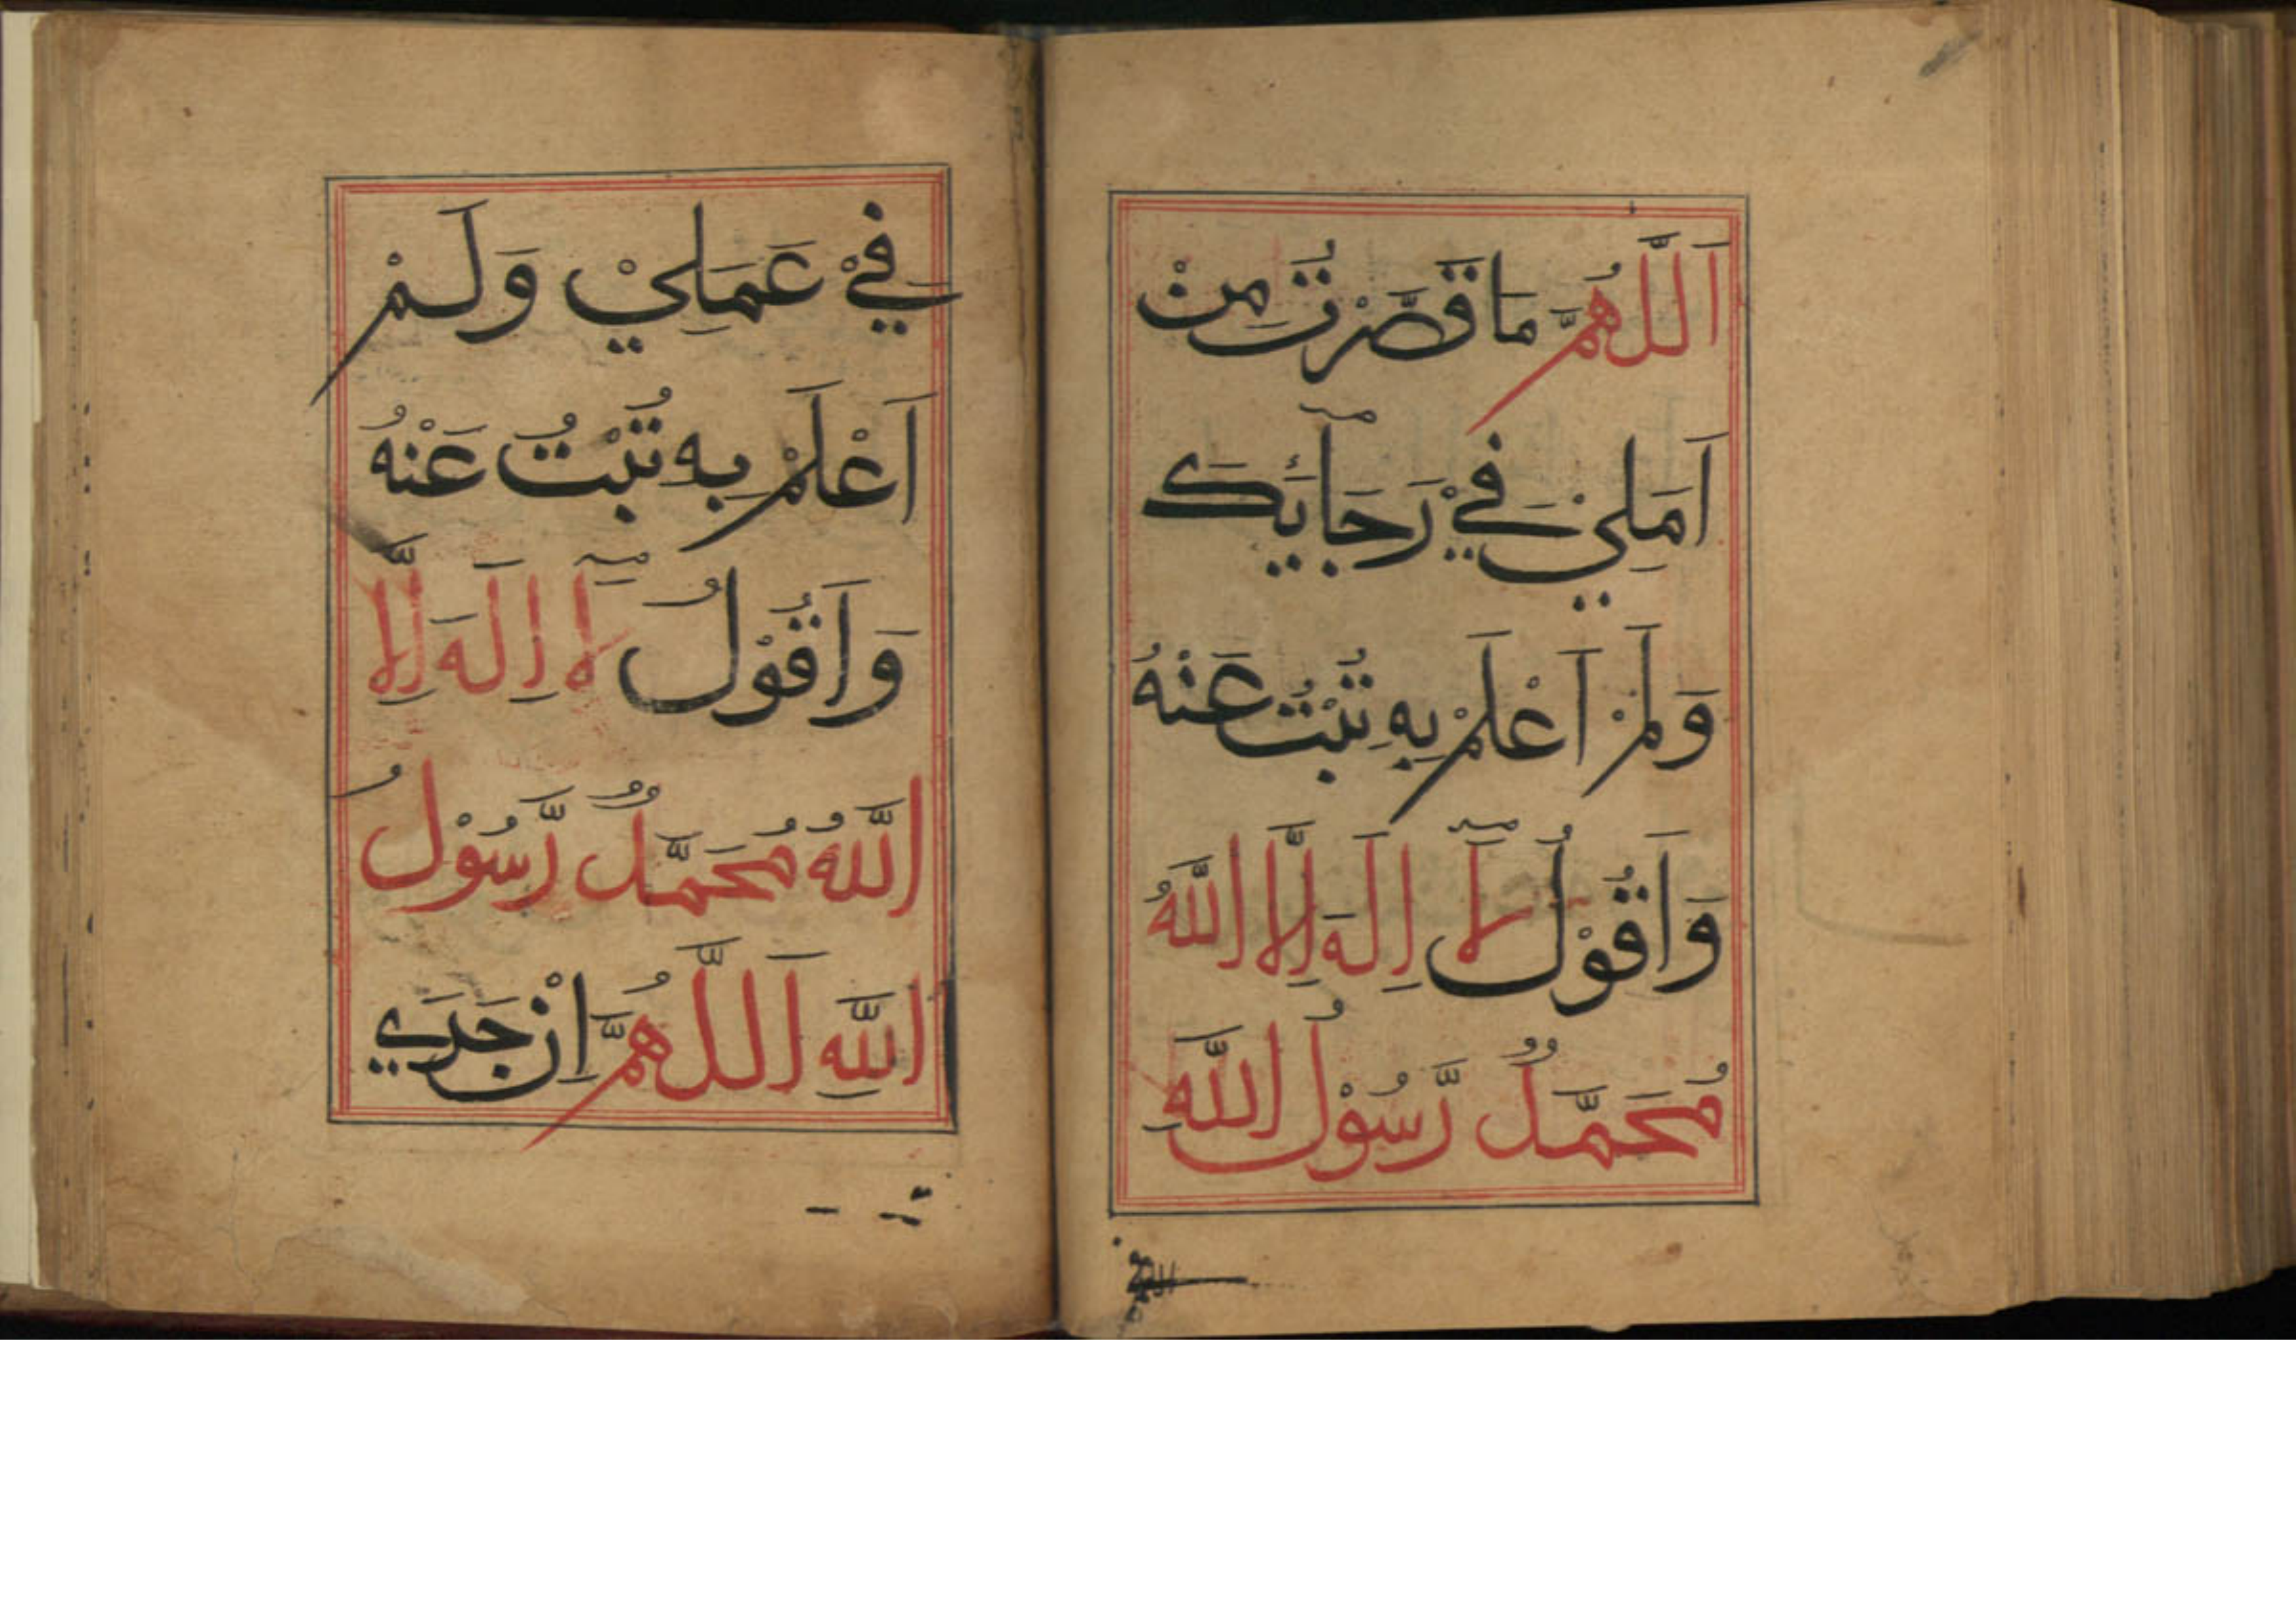 اَللّٰهُمَّ مَا قَصَّرْتُ مِنْ
اَمَلِيْ فِيْ رَجَآئِكَ
وَلَمْ اَعْلَمْ بِهِ تُبْتُ عَنْهُ
وَاَقُوْلُ لَآ اِلَهَ اِلَّا اللّٰهُ
مُحَمَّدٌ رَّسُوْلُ اللّٰهِ
فِيْ عَمَلِيْ وَلَمْ
اَعْلَمْ بِهِ تُبْتُ عَنْهُ
وَاَقُوْلُ لَآ اِلَهَ اِلَّا
اللّٰهُ مُحَمَّدٌ رَّسُوْلُ
اللّٰهِ اَللّٰهُمَّ اِنْ جَرَي